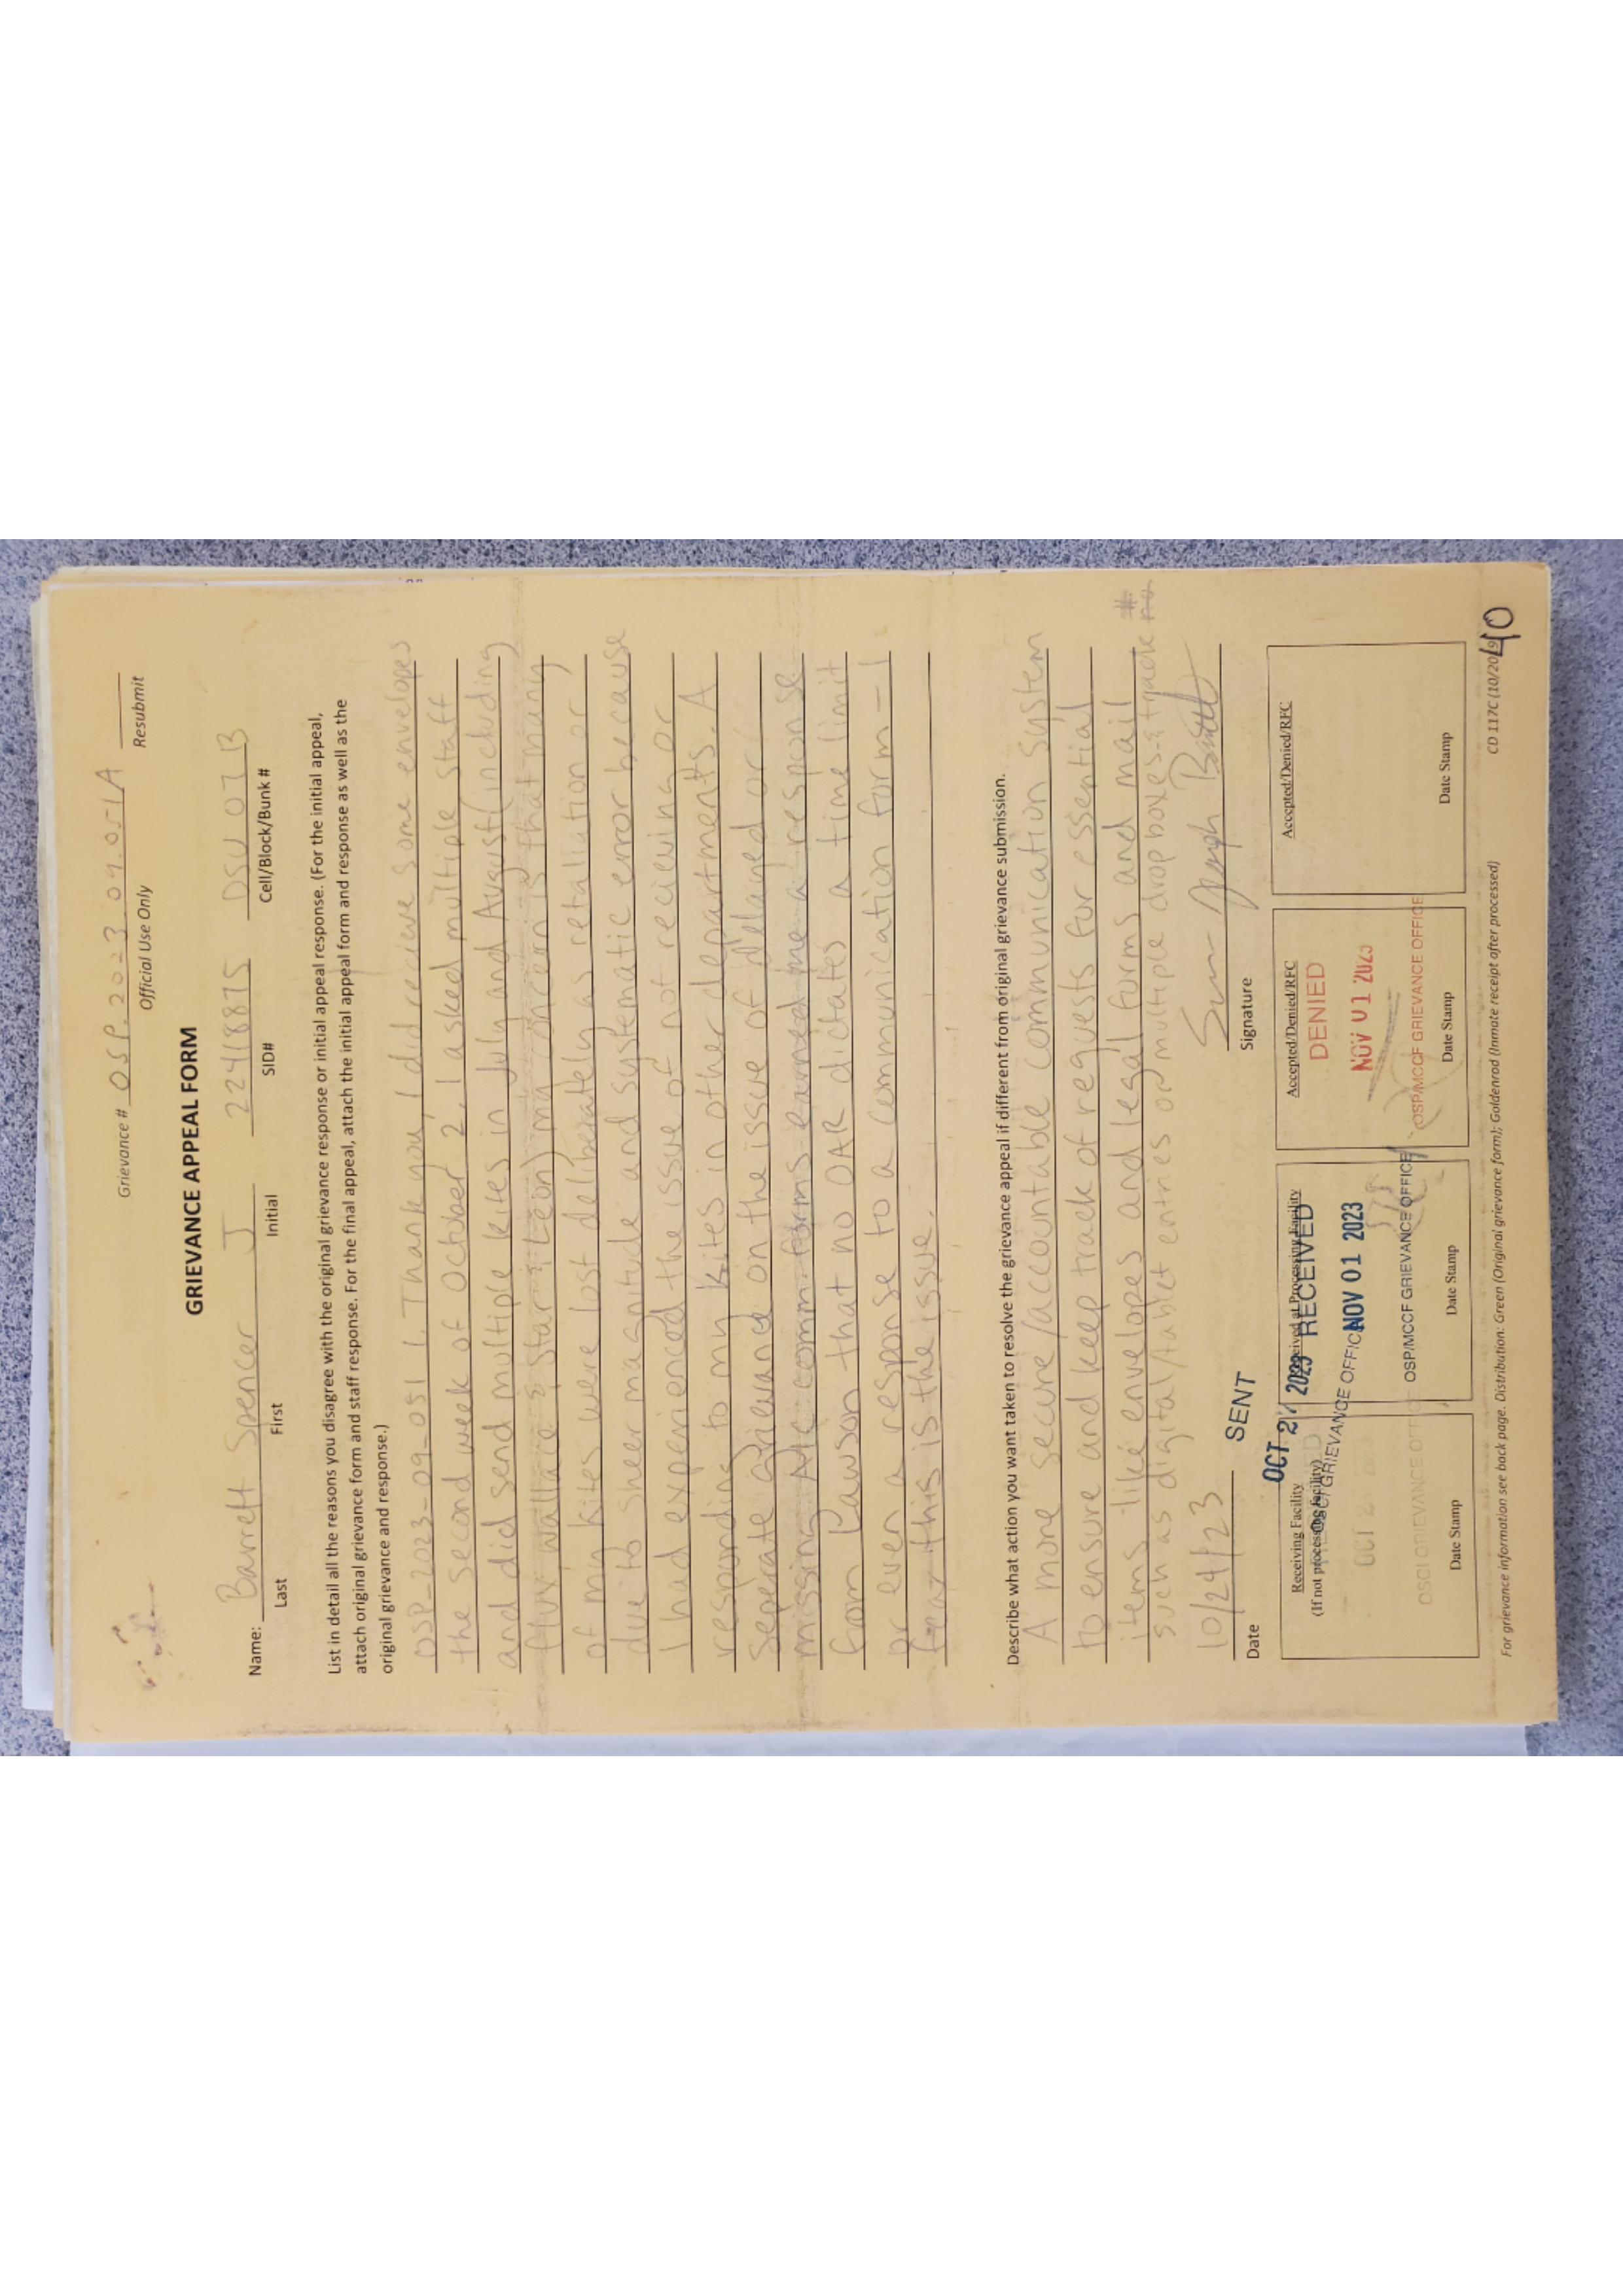 Grievance # OSP.2023.09.051A
Official Use Only
Resubmit
GRIEVANCE APPEAL FORM
Name: Barrett Spencer J 22418875 DSU 07B
Last First Initial SID# Cell/Block/Bunk #
List in detail all the reasons you disagree with the original grievance response or initial appeal response. (For the initial appeal,
attach original grievance form and staff response. For the final appeal, attach the initial appeal form and response as well as the
original grievance and response.)
OSP-2023-09-051 1. Thank you, I did recieve some envelopes
the second week of October 2. I asked multiple staff
and did send multiple kites in July and August (including
Wallace & Star & Leon) my concern is that many
of my kites were lost deliberately as retaliation or
due to sheer magnitude and systematic error because
I had experienced the issue of not recieving or
responding to my kites in other departments. A
seperate grievance on the issue of delayed or
missing comm. forms earned me a response
from Pawson that no OAR dictates a time limit
or even a response to a communication form - I
this is the issue.
Describe what action you want taken to resolve the grievance appeal if different from original grievance submission.
A more secure/accountable communication system
to ensure and keep track of requests for essential
items like envelopes and legal forms and mail
such as digital/tablet entries or multiple drop boxes & track #
10/24/23
Date
Signature
SENT
OCT 27 2023
Receiving Facility
(If not processing facility)
OSCI GRIEVANCE OFFICE
OSCI GRIEVANCE OFFICE
Date Stamp
Received at Processing Facility
RECEIVED
NOV 01 2023
OSP/MCCF GRIEVANCE OFFICE
Date Stamp
Accepted/Denied/RFC
DENIED
NOV 01 2023
OSP/MCCF GRIEVANCE OFFICE
Date Stamp
Accepted/Denied/RFC
Date Stamp
For grievance information see back page. Distribution: Green (Original grievance form); Goldenrod (Inmate receipt after processed)
CD 117C (10/2019)
40